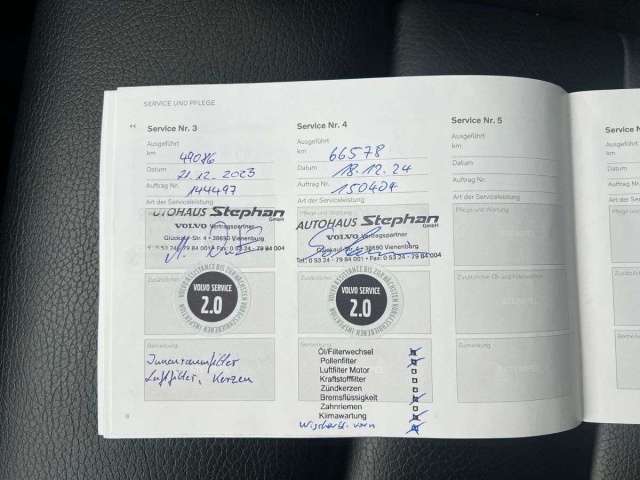 SERVICE UND PFLEGE
Service Nr. 3
Ausgeführt
km 49086
Datum 21.12.2023
Auftrag Nr. 144497
Art der Serviceleistung
AUTOHAUS Stephan GmbH
VOLVO Vertragspartner
Glückauf-Str. 4 • 38690 Vienenburg
Fax: 0 53 24 - 79 84 004
Zusätzlicher
VOLVO ASSISTANCE BIS ZUR NÄCHSTEN VORGESCHRIEBENEN INSPEKTION
VOLVO SERVICE
2.0
Bemerkung
Innenraumfilter
Luftfilter, Kerzen
6
Service Nr. 4
Ausgeführt
km 66578
Datum 18.12.24
Auftrag Nr. 150404
Art der Serviceleistung
Pflege und Wartung
AUTOHAUS Stephan GmbH
VOLVO Vertragspartner
Glückauf-Str. 4 • 38690 Vienenburg
Tel.: 0 53 24 - 79 84 001 • Fax: 0 53 24 - 79 84 004
Zusätzlicher
VOLVO ASSISTANCE BIS ZUR NÄCHSTEN VORGESCHRIEBENEN INSPEKTION
VOLVO SERVICE
2.0
Bemerkung
Öl/Filterwechsel
Pollenfilter
Luftfilter Motor
Kraftstofffilter
Zündkerzen
Bremsflüssigkeit
Zahnriemen
Klimawartung
vorn
Service Nr. 5
Ausgeführt
km
Datum
Auftrag Nr.
Art der Serviceleistung
Pflege und Wartung
Zusätzlicher Öl- und Filterwechsel
STEMPEL
Bemerkung
Service N
Ausgeführt
km
Datum
Auftrag Nr.
Art der Serv
Pflege und
Zusätzliche
Bemerkun